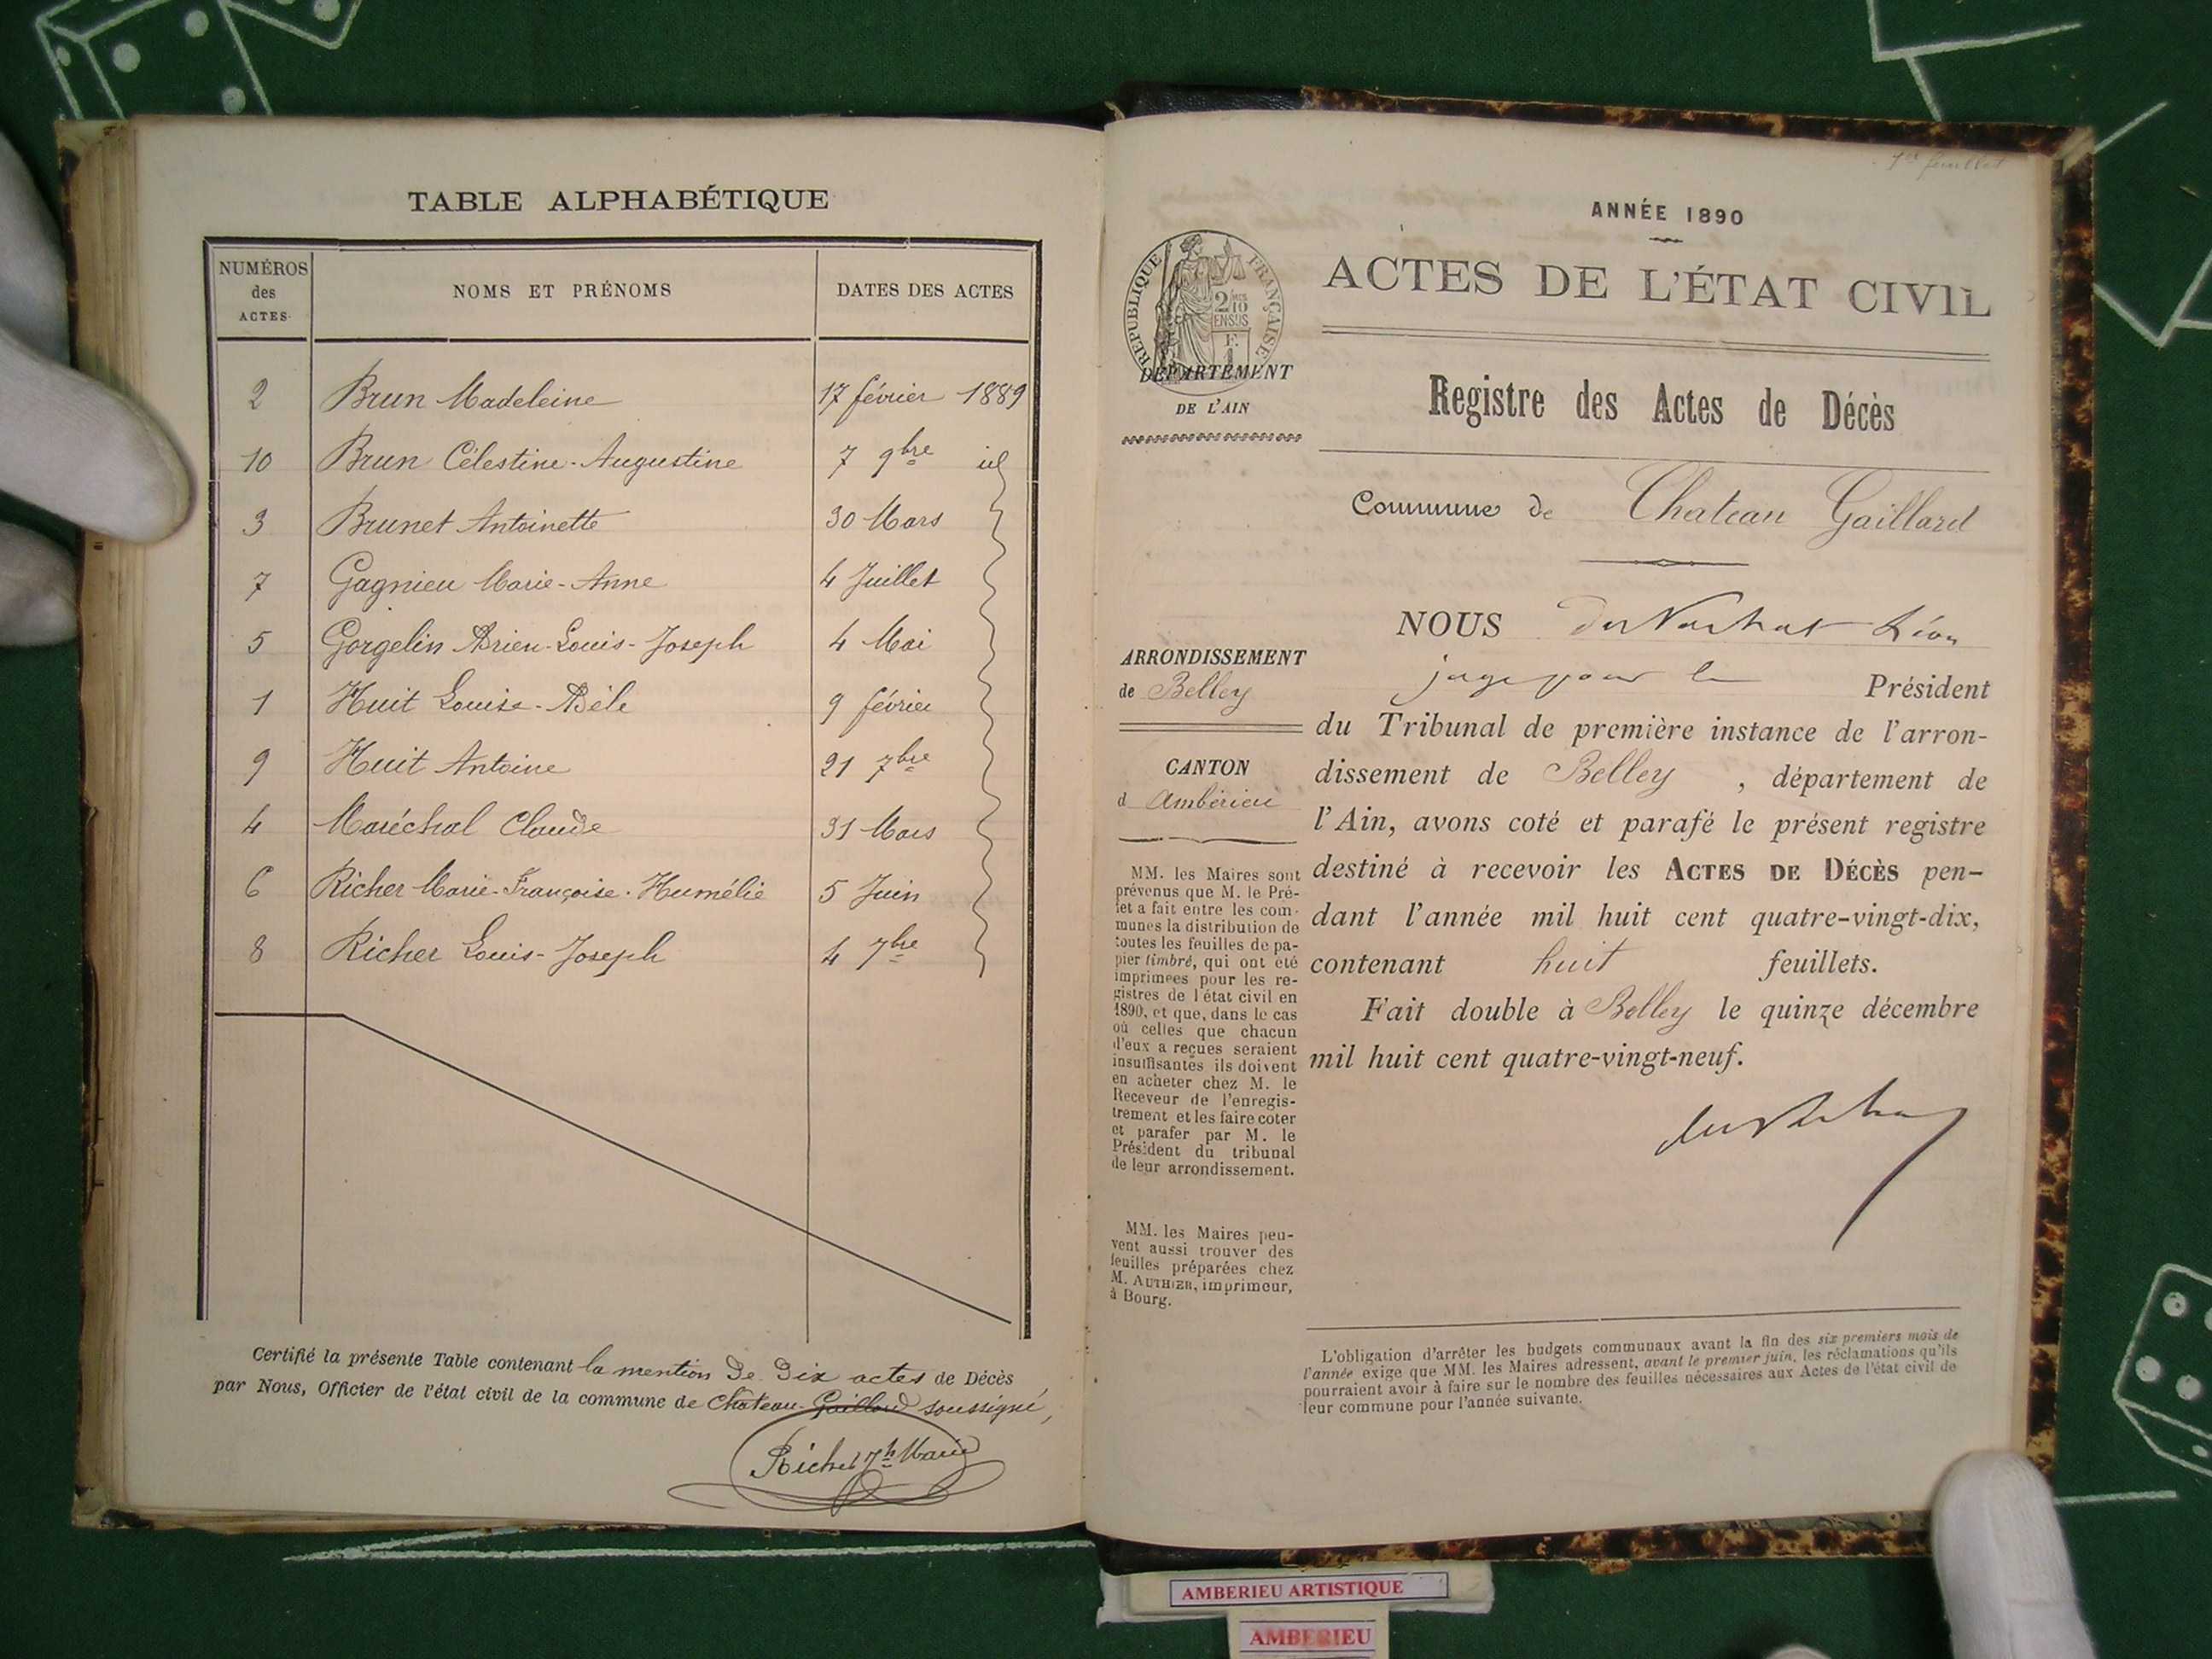 TABLE ALPHABÉTIQUE
NUMÉROS des ACTES
NOMS ET PRÉNOMS
DATES DES ACTES
2 Brun Madeleine 17 février 1889
10 Brun Célestine-Augustine 7 9bre id
3 Brunet Antoinette 30 Mars
7 Gagnieu Marie-Anne 4 Juillet
5 Gorgelin Adrien-Louis-Joseph 4 Mai
1 Huit Louise-Adèle 9 février
9 Huit Antoine 21 7bre
4 Maréchal Claude 31 Mars
6 Richer Marie-Françoise-Humélie 5 Juin
8 Richer Louis-Joseph 4 7bre
Certifié la présente Table contenant la mention de dix actes de Décès
par Nous, Officier de l'état civil de la commune de Château-Gaillard soussigné,
1er feuillet
ANNÉE 1890
ACTES DE L'ÉTAT CIVIL
RÉPUBLIQUE FRANÇAISE
2/10 EN SUS
F. 1
DÉPARTEMENT
DE L'AIN
Registre des Actes de Décès
Commune de Chateau Gaillard
ARRONDISSEMENT
de Belley
CANTON
d Ambérieu
MM. les Maires sont
prévenus que M. le Pré-
fet a fait entre les com-
munes la distribution de
toutes les feuilles de pa-
pier timbré, qui ont été
imprimées pour les re-
gistres de l'état civil en
1890, et que, dans le cas
où celles que chacun
d'eux a reçues seraient
insuffisantes ils doivent
en acheter chez M. le
Receveur de l'enregis-
trement et les faire coter
et parafer par M. le
Président du tribunal
de leur arrondissement.
MM. les Maires peu-
vent aussi trouver des
feuilles préparées chez
M. AUTHIER, imprimeur,
à Bourg.
NOUS Léon
juge pour le Président
du Tribunal de première instance de l'arron-
dissement de Belley, département de
l'Ain, avons coté et parafé le présent registre
destiné à recevoir les ACTES DE DÉCÈS pen-
dant l'année mil huit cent quatre-vingt-dix,
contenant huit feuillets.
Fait double à Belley le quinze décembre
mil huit cent quatre-vingt-neuf.
L'obligation d'arrêter les budgets communaux avant la fin des six premiers mois de
l'année exige que MM. les Maires adressent, avant le premier juin, les réclamations qu'ils
pourraient avoir à faire sur le nombre des feuilles nécessaires aux Actes de l'état civil de
leur commune pour l'année suivante.
AMBERIEU ARTISTIQUE
AMBERIEU